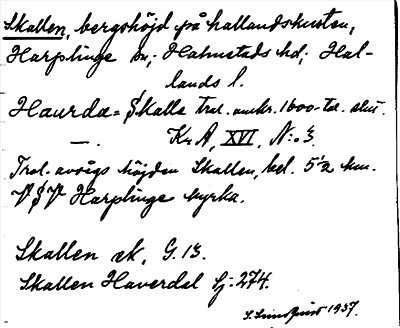 Skallen, bergshöjd på hallandskusten,
Harplinge sn; Halmstads hd; Hal-
lands l.
Haurda = Skalla trol. omkr. 1600-tal. slut.
—. KrA, XVI, N:o 3.
Trol. avses höjden Skallen, bel. 5½ km.
VSV Harplinge kyrka.
Skallen ek, G. 13.
Skallen Haverdal Sj: 274.
S. Lundquist 1937.